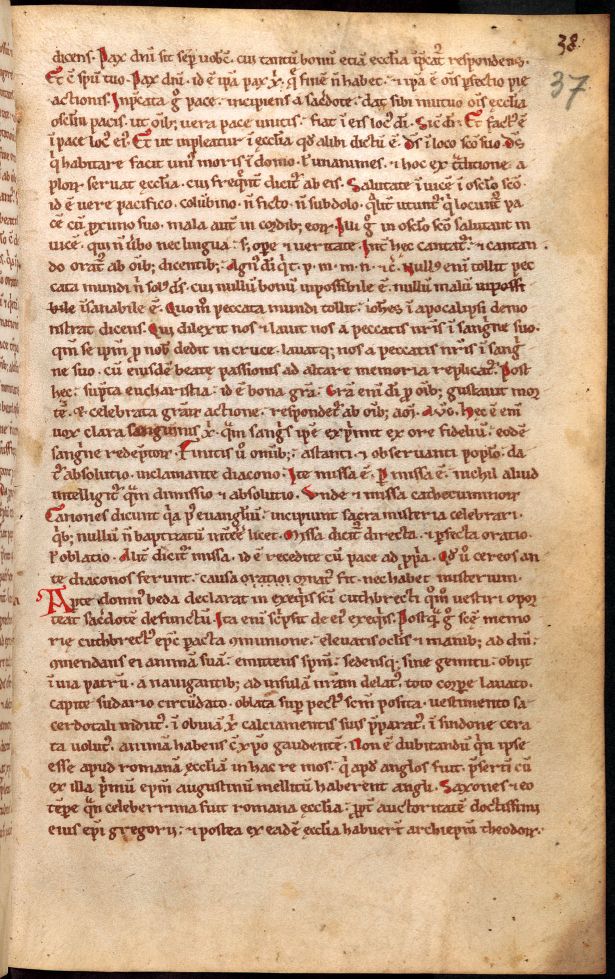 38
37
dicens. Pax dñi sit sep̄ vobc̄. cui tantū bonū etiā ecclia īp̄cat᷑ respondens.
Et c̄ spū tuo. Pax dñi. id ē ip̄a pax xp̄i. q̄ finē n̄ habet. ⁊ ip̄a ē om̄s p̄fectio pie
actionis. Inp̄cata g̊ pace. incipiens a sac̄dote. dat sibi mutuo om̄s ecclia
osclm̄ pacis. ut oīb; vera pace unitis. fiat ī eis loc᷒ di. Sic̄ dr̄. Et fact᷒ ē
ī pace loc᷒ ei᷒. Et ut inpleatur ī ecclia qd̄ alibi dictū ē. D̄s ī loco sc̄o suo. d̄s
q̇ habitare facit uni᷒ moris ī domo. ł unanimes. ⁊ hoc ex t̄ditione a
ploꝝ seruat ecclia. cui freq̄nt̄ dicit᷑ ab eis. Salutate īuicē ī osclo sc̄o.
id ē vere pacifico. colūbino. n̄ ficto. n̄ subdolo. q̄lit̄ utunt᷑ q̇ locunt᷑ pa
cē cū p̄ximo suo. mala autē in cordib; eoꝝ. Illi g̊ in osclo sc̄o salutant in
uicē. qui n̄ ūbo nec lingua. s; oꝑe ⁊ veritate. Int̄ hec cantat᷑. ⁊ cantan
do orat᷑ ab oīb; dicentib;. Agn᷒ di q̇ t. p. m. m. n. ⁊c̄. Null᷒ enī tollit pec
cata mundi n̄ sol᷒ d̄s. cui nullū bonū inpossibile ē. nullū malū inpossi
bile īsanabile ē. Quom̊ peccata mundi tollit. ioħes ī apocalipsi demo
nstrat dicens. Qui dilexit nos ⁊ lauit nos a peccatis nr̄is ī sangne suo.
qm̄ se ip̄m p̄ nob̄ dedit in cruce. lauatq; nos a peccatis nr̄is ī sang̊
ne suo. cū eiusdē beatę passionis ad altare memoria replicat᷑. Post
hec. sūpta eucharistia. id ē bona gr̄a. Gr̄a enī di p̄ oīb; gustauit mor
tē. ⁊ celebrata gr̄aꝝ actione. respondet᷑ ab oīb; aoı̄. Am̄. Hec ē enī
vox clara sanguinis xp̄i. q̄m sang̊s ip̄e exp̄mit ex ore fideliū. eodē
sangne redeptoꝝ. Finitis ū omīb; astanti ⁊ obseruanti poplo. da
t᷑ absolutio. inclamante diacono. Ite missa ē. P̄ missa ē. nichil aliud
intelligit᷑ q̄m dimissio ⁊ absolutio. Unde ⁊ missa cathecuminoꝝ
Canones dicunt q̇a p᷒ euangłiū. incipiunt sacra misteria celebrari.
q̇b; nullū n̄ baptizatū int̄ee licet. Missa dicit᷑ directa. ⁊ p̄fecta oratio.
ł oblatio. Alit̄ dicit᷑ missa. id ē recedite cū pace ad p̄pria. Qd̄ ū cereos an
te diaconos ferunt. causa oratioı ornat᷒ fit. nec habet misterium.
Apte domn᷒ beda declarat in exeq̇is sc̄i cuthbrecti quom̊ vestiri opor
teat sac̄dotē defunctū. Ita enī sc̄psit de ei᷒ exeq̇is. Postq̄m g̊ sc̄ę memo
rię cuthbreckt᷒ epc̄ p̄acta cmunione. eleuatis oclis ⁊ manib; ad dn̄m.
cm̄endans ei animā suā. emittens spm̄. sedensq; sine gemitu. obiit
ī uia patrū. a nauigantib; ad insulā nr̄am delat᷒. toto corꝑe lauato.
capite sudario circūdato. oblata sup̄ pect᷒ sc̄m posita. uestimento sa
cerdotali indut᷒. ī obuiā xp̄i calciamentis suis p̄parat᷒. ī sindone cera
ta volut᷒. animā habens c̄ xp̄o gaudentē. Non ē dubitandū q̇n ipse
esset apud romanā ecclīā in hac re mos. q̇ apd̄ anglos fuit. p̄serti cū
ex illa p̄mū epm̄ augustinū mellitū haberent angli. Saxones ⁊ eo
tēpe q̄m celeberrima fuit romana ecclia. ꝓpt̄ auctoritatē doctissimi
eius epi gregorii. ⁊ postea ex eadē ecclia habuert̄ archiepm̄ theodoꝝ.